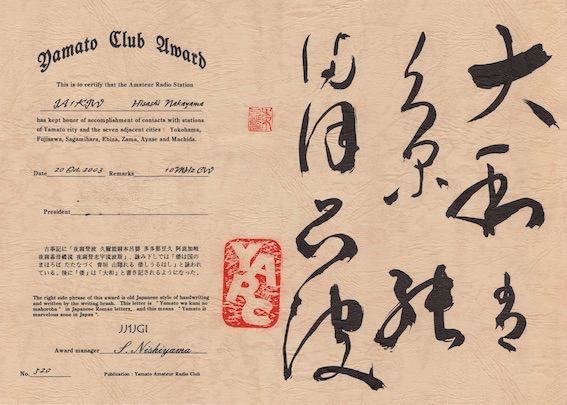 Yamato Club Award
This is to certify that the Amateur Radio Station
Hisashi Nakayama
has kept honor of accomplishment of contacts with stations
of Yamato city and the seven adjacent cities : Yokohama,
Fujisawa, Sagamihara, Ebina, Zama, Ayase and Machida.
Date 20 Oct. 2003 Remarks 10MHz CW
President
古事記に「夜麻登波 久爾能麻本呂婆 多多那豆久 阿袁加岐
夜麻碁母禮流 夜麻登志宇流波斯」、詠み下しで「倭は国の
まほろば たたなづく 青垣 山隠れる 倭しうるはし」と詠われ
ている。後に「倭」は「大和」と書き記されるようになった。
The right side phrase of this award is old Japanese style of handwriting
and written by the writing brush. This letter is " Yamato wa kuni no
mahoroba " in Japanese Roman letters, and this means " Yamato is
marvelous zone in Japan "
JJ1JGI
Award manager S. Nishiyama
No. 520 Publication : Yamato Amateur Radio Club
YARC
大和